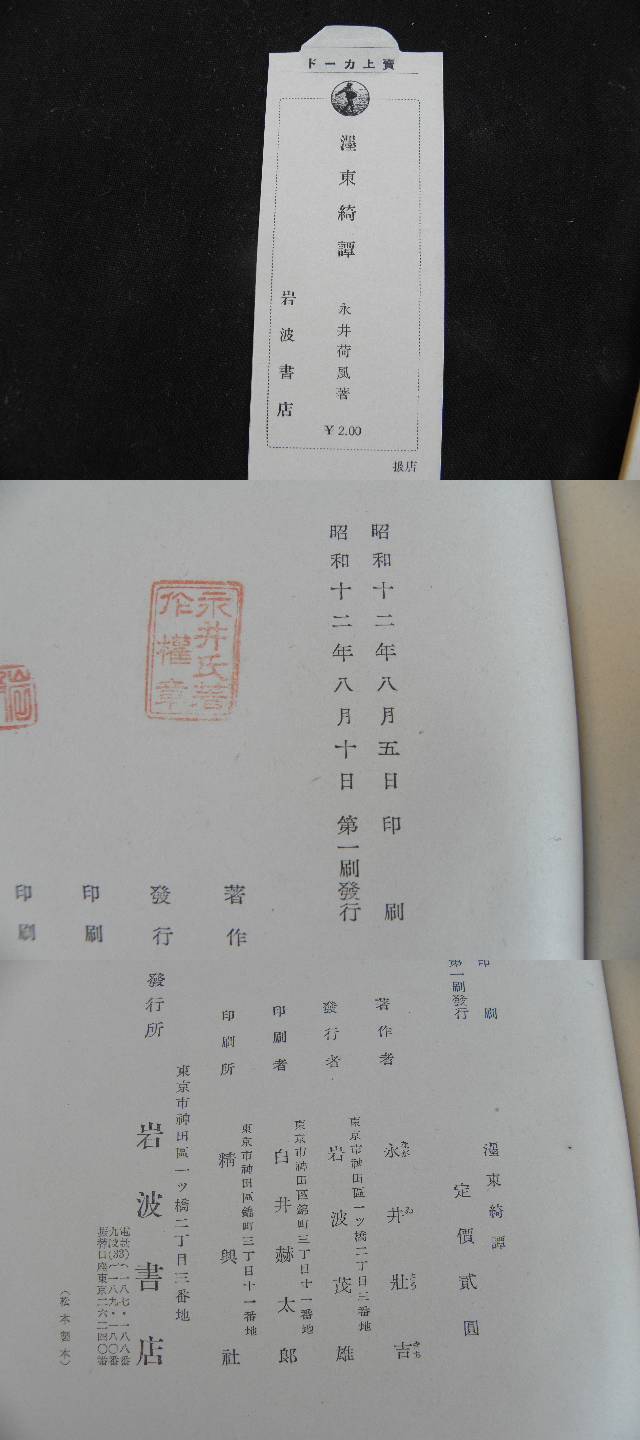 賣上カード
濹東綺譚
永井荷風著
¥ 2.00
岩波書店
扱店
昭和十二年八月五日 印刷
昭和十二年八月十日 第一刷發行
永井氏著
作權章
著作
發行
印刷
印刷
印刷
第一刷發行
濹東綺譚
定價貳圓
著作者 永井壯吉
東京市神田區一ツ橋二丁目三番地
發行者 岩波茂雄
東京市神田區錦町三丁目十一番地
印刷者 白井赫太郎
東京市神田區錦町三丁目十一番地
印刷所 精興社
東京市神田區一ツ橋二丁目三番地
發行所 岩波書店
振替口座東京二六二四〇番
(松本製本)